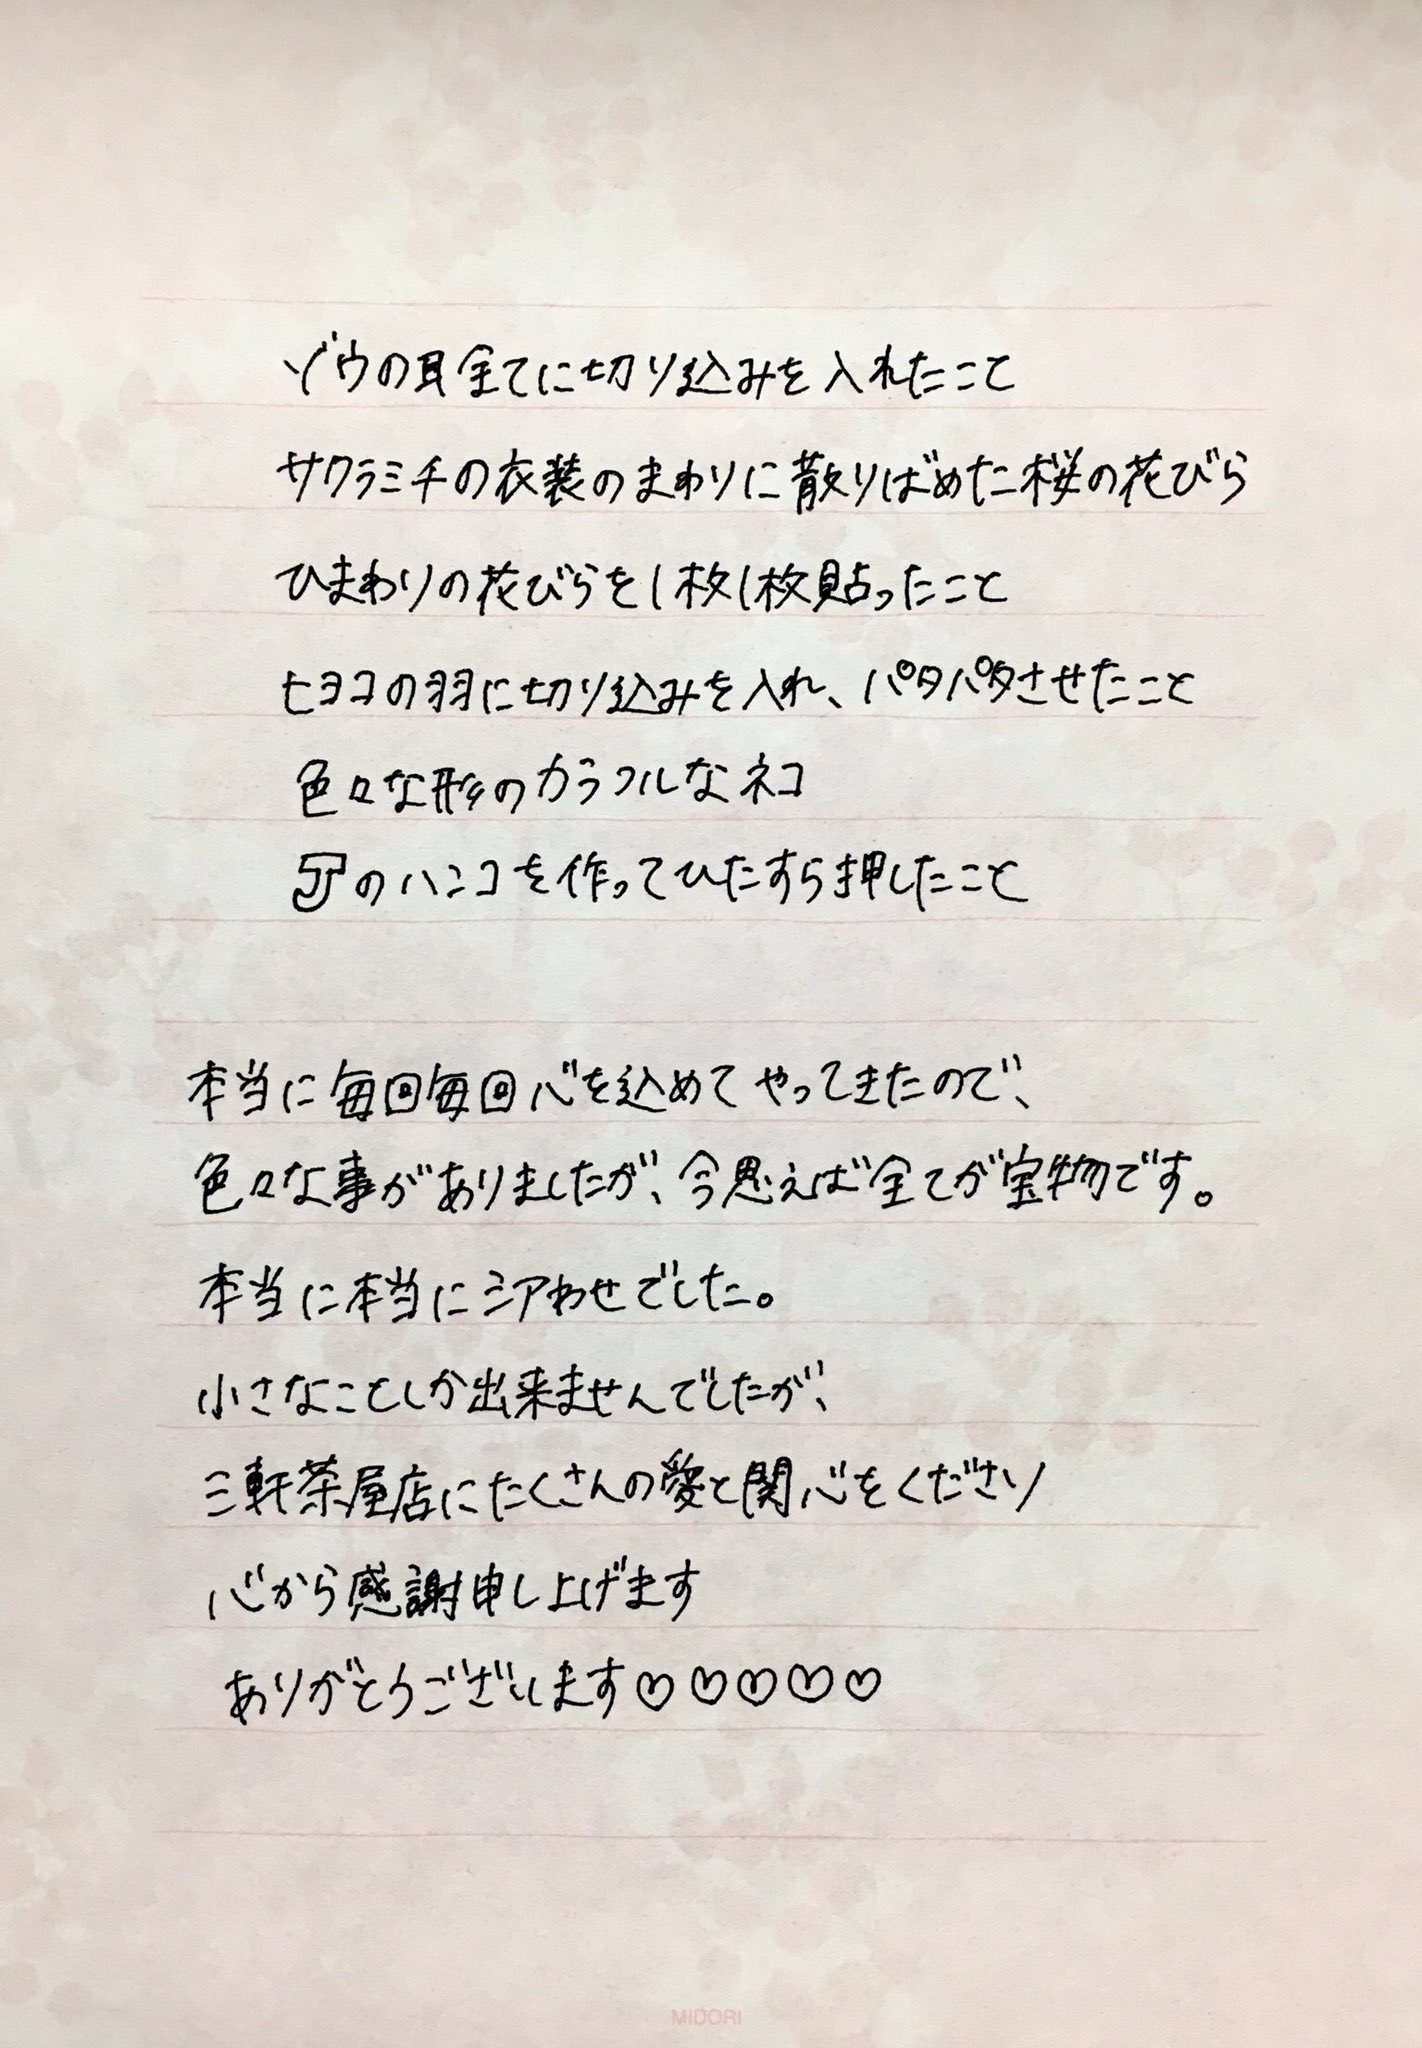 ゾウの耳全てに切り込みを入れたこと
サクラミチの衣装のまわりに散りばめた桜の花びら
ひまわりの花びらを1枚1枚貼ったこと
ヒヨコの羽に切り込みを入れ、パタパタさせたこと
色々な形のカラフルなネコ
のハンコを作ってひたすら押したこと
本当に毎回毎回心を込めてやってきたので、
色々な事がありましたが、今思えば全てが宝物です。
本当に本当にシアわせでした。
小さなことしか出来ませんでしたが、
三軒茶屋店にたくさんの愛と関心をくださり
心から感謝申し上げます
ありがとうございます♡♡♡♡♡
MIDORI